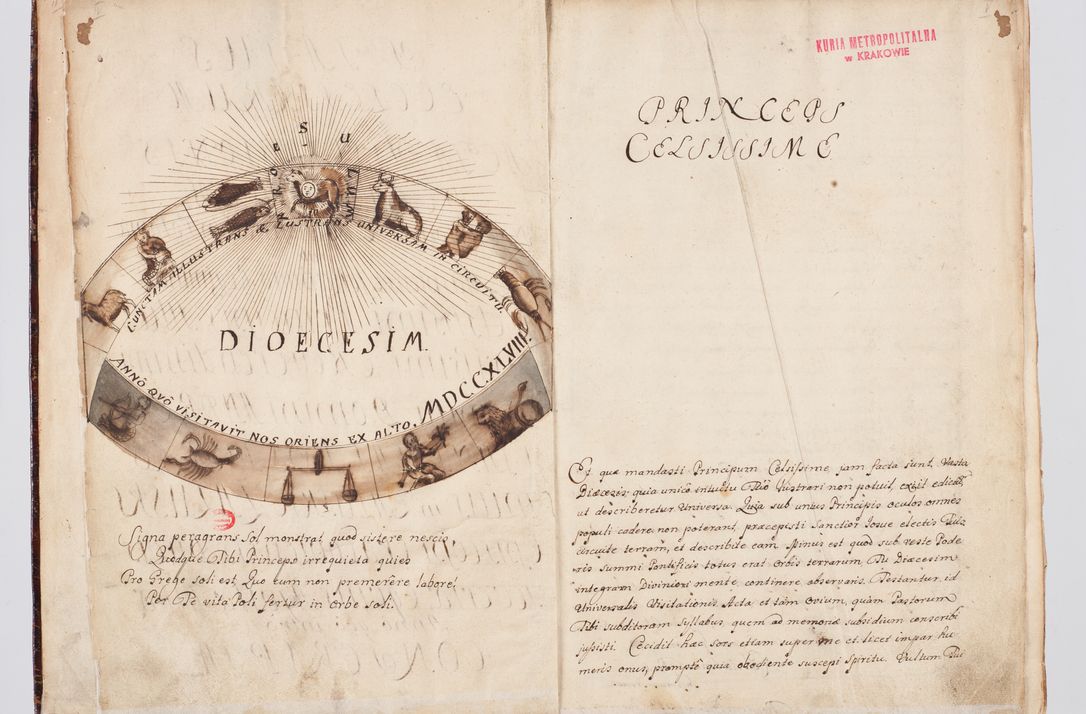 DIOECESIM
CUNCTAM ILLUSTRANS & LUSTRANS UNIVERSAM IN CIRCUITU.
ANNÔ QVÔ VISITAVIT NOS ORIENS EX ALTO, MDCCXLVIII
Signa peragrans Sol monstrat quod sistere nescis,
Quodque Tibi Princeps irrequieta quies
Pro Grege soli est, Quo cum non premerere labore!
Per Te vita Poli fertur in orbe soli.
KURIA METROPOLITALNA
w KRAKOWIE
PRINCEPS
CELSISSIME
Et quæ mandasti Principum Celsissime jam facta sunt, Vasta
Diæcesis, quia unico intuitu Tuo lustrari non potuit, exiit edictũ,
ut describeretur Universa. Quia sub unius Principis oculos omnes
populi cadere non poterant, præcepisti Sanctior Josue electis Tuis
circuite terram, et describite eam. Minus est quod sub veste Pode
ris Summi Pontificis totus erat orbis terrarum, Tu Diæcesim
integram Diviniori mente continere observaris. Testantur id
Universalis Visitationis Acta et tàm ovium, quàm Pastorum
Tibi subditorum Syllabus quem ad memoriæ subsidium conscribi
jussisti. Cecidit hæc Sors etiam super me et licet impar hu
meris onus, promptè quia obediente suscepi Spiritu. Vultum Tui